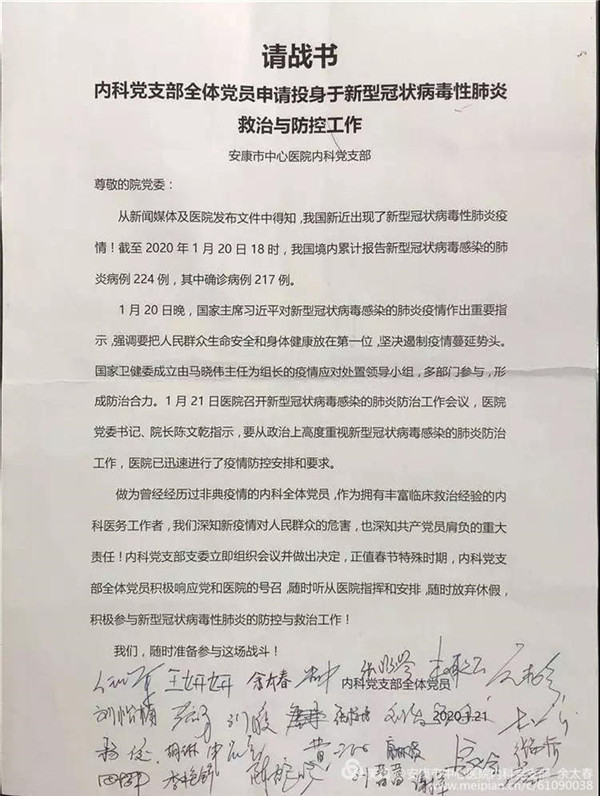 请战书
内科党支部全体党员申请投身于新型冠状病毒性肺炎
救治与防控工作
安康市中心医院内科党支部
尊敬的院党委：
从新闻媒体及医院发布文件中得知，我国新近出现了新型冠状病毒性肺炎疫
情！截至 2020 年 1 月 20 日 18 时，我国境内累计报告新型冠状病毒感染的肺
炎病例 224 例，其中确诊病例 217 例。
1 月 20 日晚，国家主席习近平对新型冠状病毒感染的肺炎疫情作出重要指
示，强调要把人民群众生命安全和身体健康放在第一位，坚决遏制疫情蔓延势头。
国家卫健委成立由马晓伟主任为组长的疫情应对处置领导小组，多部门参与，形
成防治合力。1 月 21 日医院召开新型冠状病毒感染的肺炎防治工作会议，医院
党委书记、院长陈文乾指示，要从政治上高度重视新型冠状病毒感染的肺炎防治
工作，医院已迅速进行了疫情防控安排和要求。
做为曾经经历过非典疫情的内科全体党员，作为拥有丰富临床救治经验的内
科医务工作者，我们深知新疫情对人民群众的危害，也深知共产党员肩负的重大
责任！内科党支部支委立即组织会议并做出决定，正值春节特殊时期，内科党支
部全体党员积极响应党和医院的号召，随时听从医院指挥和安排，随时放弃休假，
积极参与新型冠状病毒性肺炎的防控与救治工作！
我们，随时准备参与这场战斗！
王妍妍 余太春 内科党支部全体党员
刘怡楠 2020.1.21
杨侹 胡琳
李艳
安康市中心医院内科 余太春
www.meipian.cn/c/61090038